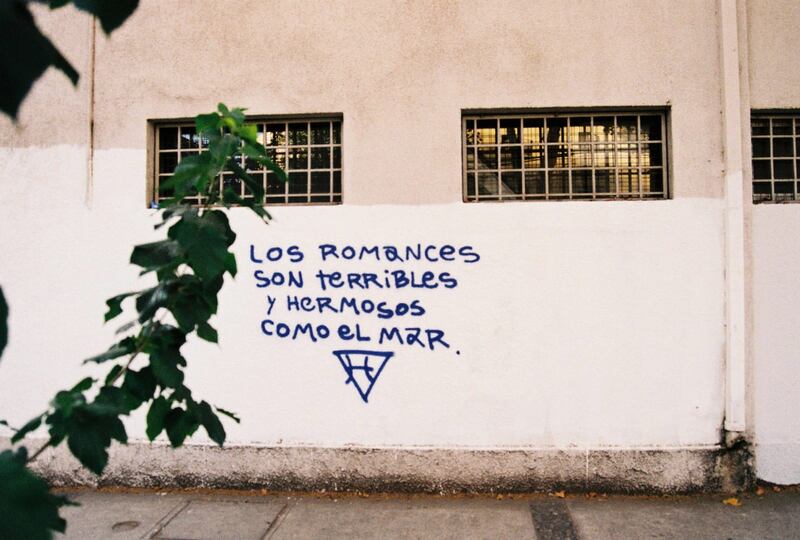 LOS ROMANCES
SON TERRIBLES
Y HERMOSOS
COMO EL MAR.
H